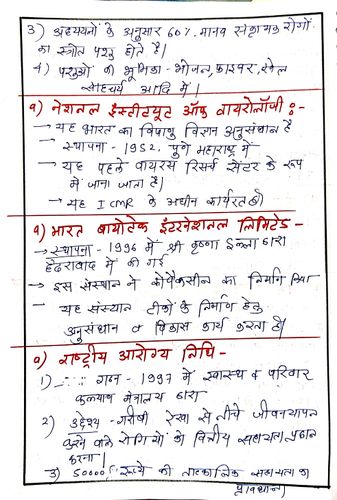 3) अध्ययनों के अनुसार 60% मानव संक्रामक रोगों
का स्त्रोत पशु होते है।
4) पशुओं की भूमिका - भोजन, फाइबर, खेल
साहचर्य आदि में।
a) नेशनल इंस्टीट्यूट ऑफ वायरोलॉजी :-
→ यह भारत का विषाणु विज्ञान अनुसंधान है
→ स्थापना - 1952, पुणे महाराष्ट्र में
→ यह पहले वायरस रिसर्च सेंटर के रूप
में जाना जाता है।
→ यह ICMR के अधीन कार्यरत है
a) भारत बायोटेक इंटरनेशनल लिमिटेड -
→ स्थापना - 1996 में श्री कृष्णा इल्ला द्वारा
हैदराबाद में की गई
→ इस संस्थान ने कोवैक्सीन का निर्माण किया
→ यह संस्थान टीकों के निर्माण हेतु
अनुसंधान व विकास कार्य करता है।
a) राष्ट्रीय आरोग्य निधि -
1) गठन - 1997 में स्वास्थ्य व परिवार
कल्याण मंत्रालय द्वारा
2) उद्देश्य - गरीबी रेखा से नीचे जीवनयापन
करने वाले रोगियों को वित्तीय सहायता प्रदान
करना।
3) 50000 रूपये की तात्कालिक सहायता का
प्रावधान।